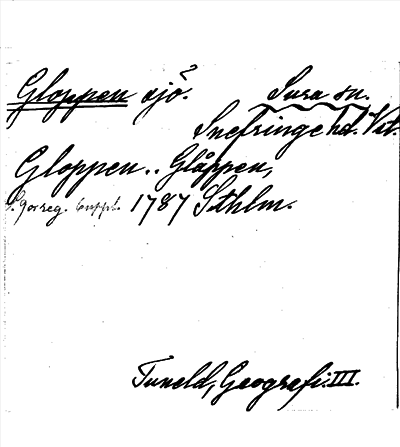 Gloppen sjö. Sura sn.
Snefringe hd. Vstm.
Gloppen.. Glåppen,
1787 Sthlm.
Tuneld, Geografi. III.